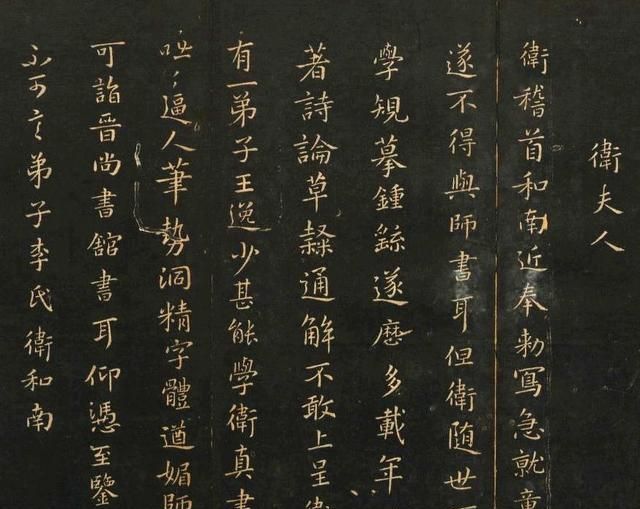 衛夫人
衛稽首和南近奉勅寫急就章
遂不得與師書耳但衛隨世
學規摹鍾繇遂歷多載年
著詩論草隸通解不敢上呈衛
有一弟子王逸少甚能學衛真書
咄咄逼人筆勢洞精字體遒媚師
可詣晉尚書舘書耳仰憑至鑒
不可言弟子李氏衛和南